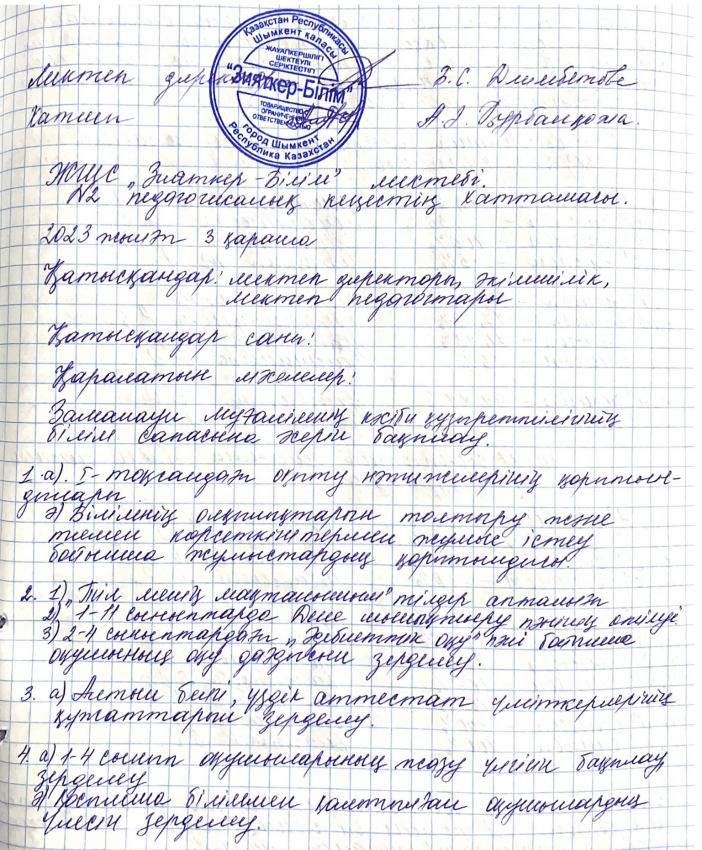 Қазақстан Республикасы
Шымкент қаласы
ЖАУАПКЕРШІЛІГІ
ШЕКТЕУЛІ
СЕРІКТЕСТІГІ
"Зияткер-Білім"
ТОВАРИЩЕСТВО С
ОГРАНИЧЕННОЙ
ОТВЕТСТВЕННОСТЬЮ
город Шымкент
Республика Казахстан
Мектеп директоры Б.С. Дилбетова
Хатшы А.Ә. Құрбанқожа.
ЖШС "Зияткер-Білім" мектебі.
№2 педагогикалық кеңестің хаттамасы.
2023 жылғы 3 қараша
Қатысқандар: мектеп директоры, әкімшілік,
мектеп педагогтары
Қатысқандар саны:
Қаралатын мәселелер:
Заманауи мұғалімнің кәсіби құзіреттілігінің
білім сапасына әсерін бақылау.
1. а). I-тоқсандағы оқыту нәтижелерінің қорытын-
дылары
ә) Білімнің олқылықтарын толтыру және
төмен көрсеткіштермен жұмыс істеу
бойынша жұмыстардың қорытындысы
2. 1) "Тіл менің мақтанышым" тілдер апталығы
2) 1-11 сыныптарда Дене шынықтыру пәнінің өтілуі
3) 2-4 сыныптардағы "Әдебиеттік оқу" пәні бойынша
оқушының оқу дағдысын зерделеу.
3. а) Алтын белгі, үздік аттестат үміткерлерінің
құжаттарын зерделеу.
4. а) 1-4 сынып оқушыларының жазу үлгісін бақылау,
зерделеу
ә) Қосымша біліммен қамтылған оқушылардың
үлесін зерделеу.